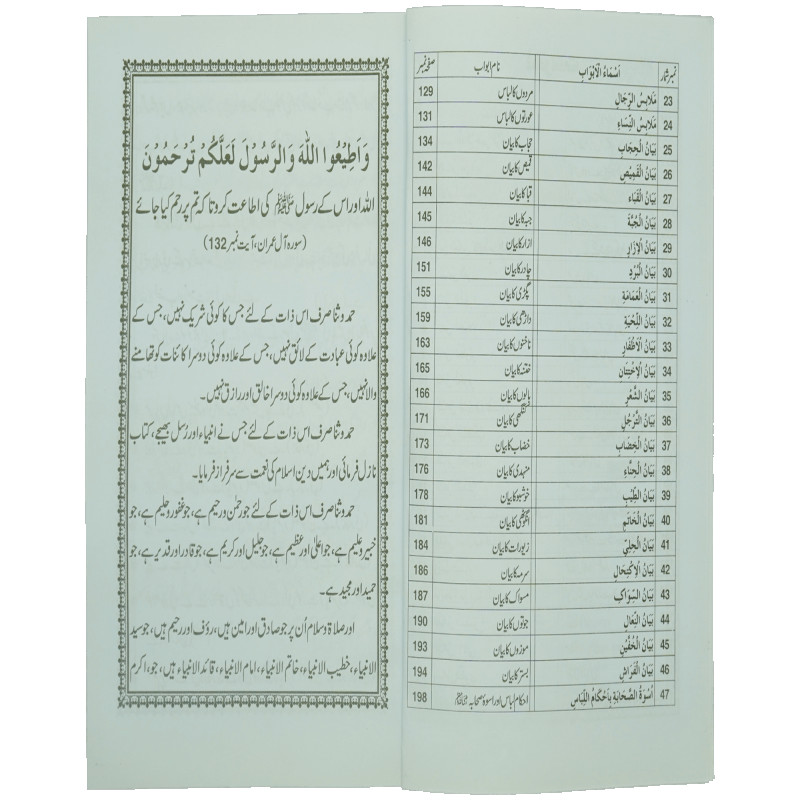 نمبر شمار اَسْمَاءُ الْاَبْوَابِ نام ابواب صفحہ نمبر
23 مَلَابِسُ الرِّجَالِ مردوں کا لباس 129
24 مَلَابِسُ النِّسَاءِ عورتوں کا لباس 131
25 بَيَانُ الْحِجَابِ حجاب کا بیان 134
26 بَيَانُ الْقَمِيْصِ قمیص کا بیان 142
27 بَيَانُ الْقَبَاءِ قبا کا بیان 144
28 بَيَانُ الْجُبَّةِ جبہ کا بیان 145
29 بَيَانُ الْاِزَارِ ازار کا بیان 146
30 بَيَانُ الْبُرْدِ چادر کا بیان 151
31 بَيَانُ الْعَمَامَةِ پگڑی کا بیان 155
32 بَيَانُ اللِّحْيَةِ داڑھی کا بیان 159
33 بَيَانُ الْاَظْفَارِ ناخنوں کا بیان 163
34 بَيَانُ الْاِخْتِتَانِ ختنہ کا بیان 165
35 بَيَانُ الشَّعْرِ بالوں کا بیان 166
36 بَيَانُ التَّرَجُّلِ کنگھی کا بیان 171
37 بَيَانُ الْخِضَابِ خضاب کا بیان 173
38 بَيَانُ الْحِنَّاءِ منہدی کا بیان 176
39 بَيَانُ الطِّيْبِ خوشبو کا بیان 178
40 بَيَانُ الْخَاتَمِ انگوٹھی کا بیان 181
41 بَيَانُ الْحِلِيِّ زیورات کا بیان 184
42 بَيَانُ الْاِكْتِحَالِ سرمہ کا بیان 186
43 بَيَانُ السِّوَاكِ مسواک کا بیان 187
44 بَيَانُ النِّعَالِ جوتوں کا بیان 190
45 بَيَانُ الْخُفَّيْنِ موزوں کا بیان 193
46 بَيَانُ الْفِرَاشِ بستر کا بیان 194
47 اُسْوَةُ الصَّحَابَةِ بِاَحْكَامِ اللِّبَاسِ احکام لباس اور اسوۂ صحابہ 198
وَاَطِيْعُوا اللّٰهَ وَالرَّسُوْلَ لَعَلَّكُمْ تُرْحَمُوْنَ
اللہ اور اس کے رسول ﷺ کی اطاعت کرو تاکہ تم پر رحم کیا جائے
(سورہ آل عمران، آیت نمبر 132)
حمد و ثنا صرف اس ذات کے لئے جس کا کوئی شریک نہیں، جس کے
علاوہ کوئی عبادت کے لائق نہیں، جس کے علاوہ کوئی دوسرا کائنات کو تھامنے
والا نہیں، جس کے علاوہ کوئی دوسرا خالق اور رازق نہیں۔
حمد و ثنا صرف اس ذات کے لئے جس نے انبیاء اور رُسل بھیجے، کتاب
نازل فرمائی اور ہمیں دین اسلام کی نعمت سے سرفراز فرمایا۔
حمد و ثنا صرف اس ذات کے لئے جو رحمٰن و رحیم ہے، جو غفور و حلیم ہے، جو
خبیر و علیم ہے، جو اعلیٰ اور عظیم ہے، جو جلیل اور کریم ہے، جو قادر اور قدیر ہے، جو
حمید اور مجید ہے۔
اور صلاۃ و سلام اُن پر جو صادق اور امین ہیں، رؤف اور رحیم ہیں، جو سید
الانبیاء، خطیب الانبیاء، خاتم الانبیاء، امام الانبیاء، قائد الانبیاء ہیں، جو، اکرم